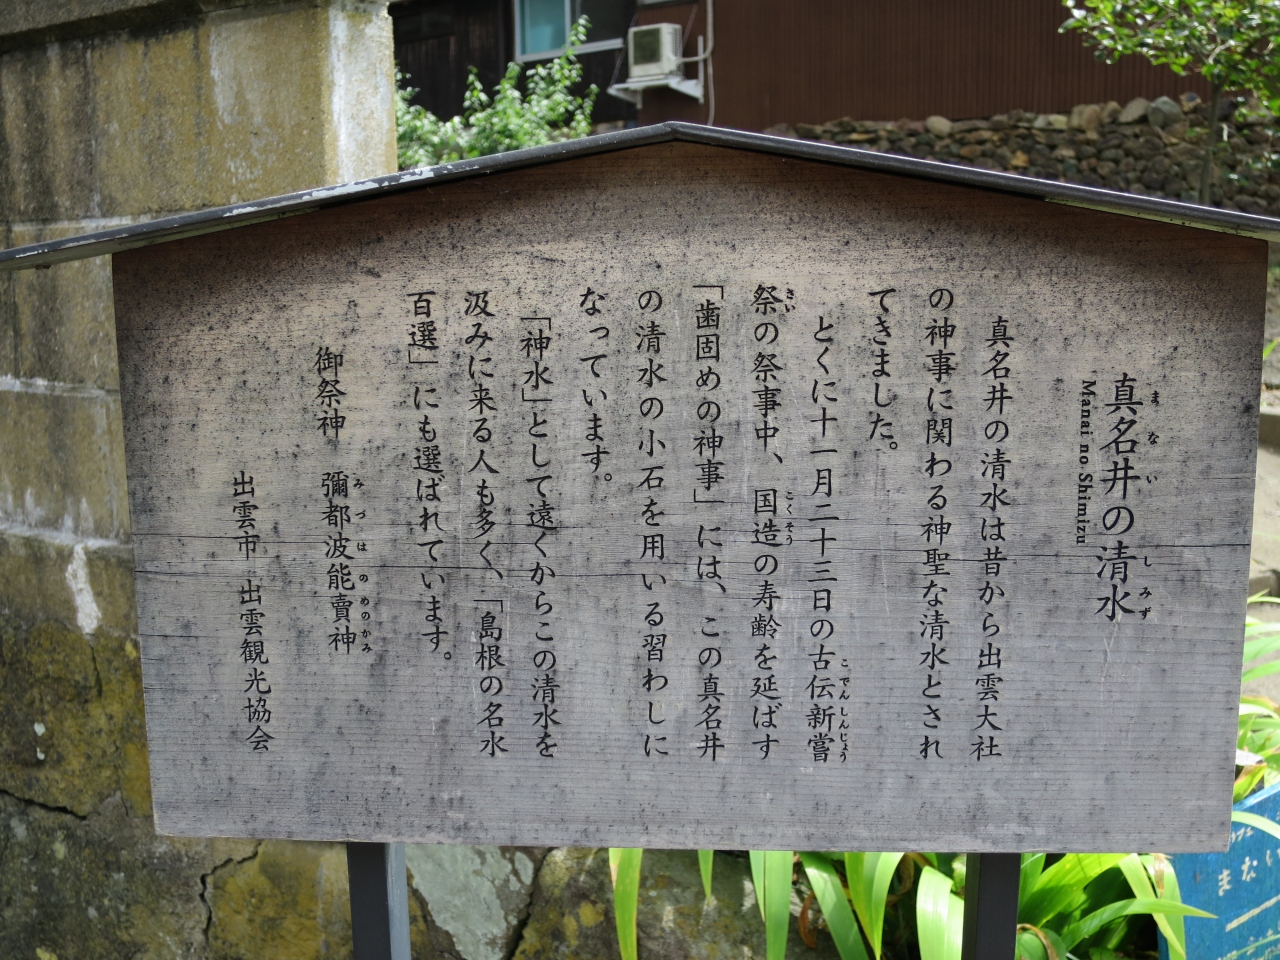 真名井の清水
まない しみず
Manai no Shimizu
真名井の清水は昔から出雲大社
の神事に関わる神聖な清水とされ
てきました。
とくに十一月二十三日の古伝新嘗
こでんしんじょう
祭の祭事中、国造の寿齢を延ばす
さい こくそう
「歯固めの神事」には、この真名井
の清水の小石を用いる習わしに
なっています。
「神水」として遠くからこの清水を
汲みに来る人も多く、「島根の名水
百選」にも選ばれています。
御祭神 彌都波能賣神
みづはのめのかみ
出雲市 出雲観光協会
まない